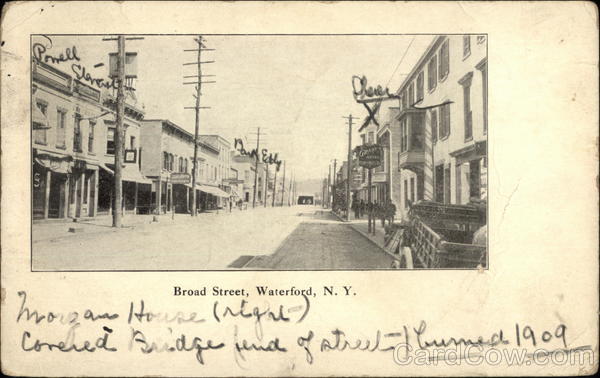 Powell
Broad Street, Waterford, N. Y.
Morgan House (right)
Covered Bridge (end of street) burned 1909
CardCow.com